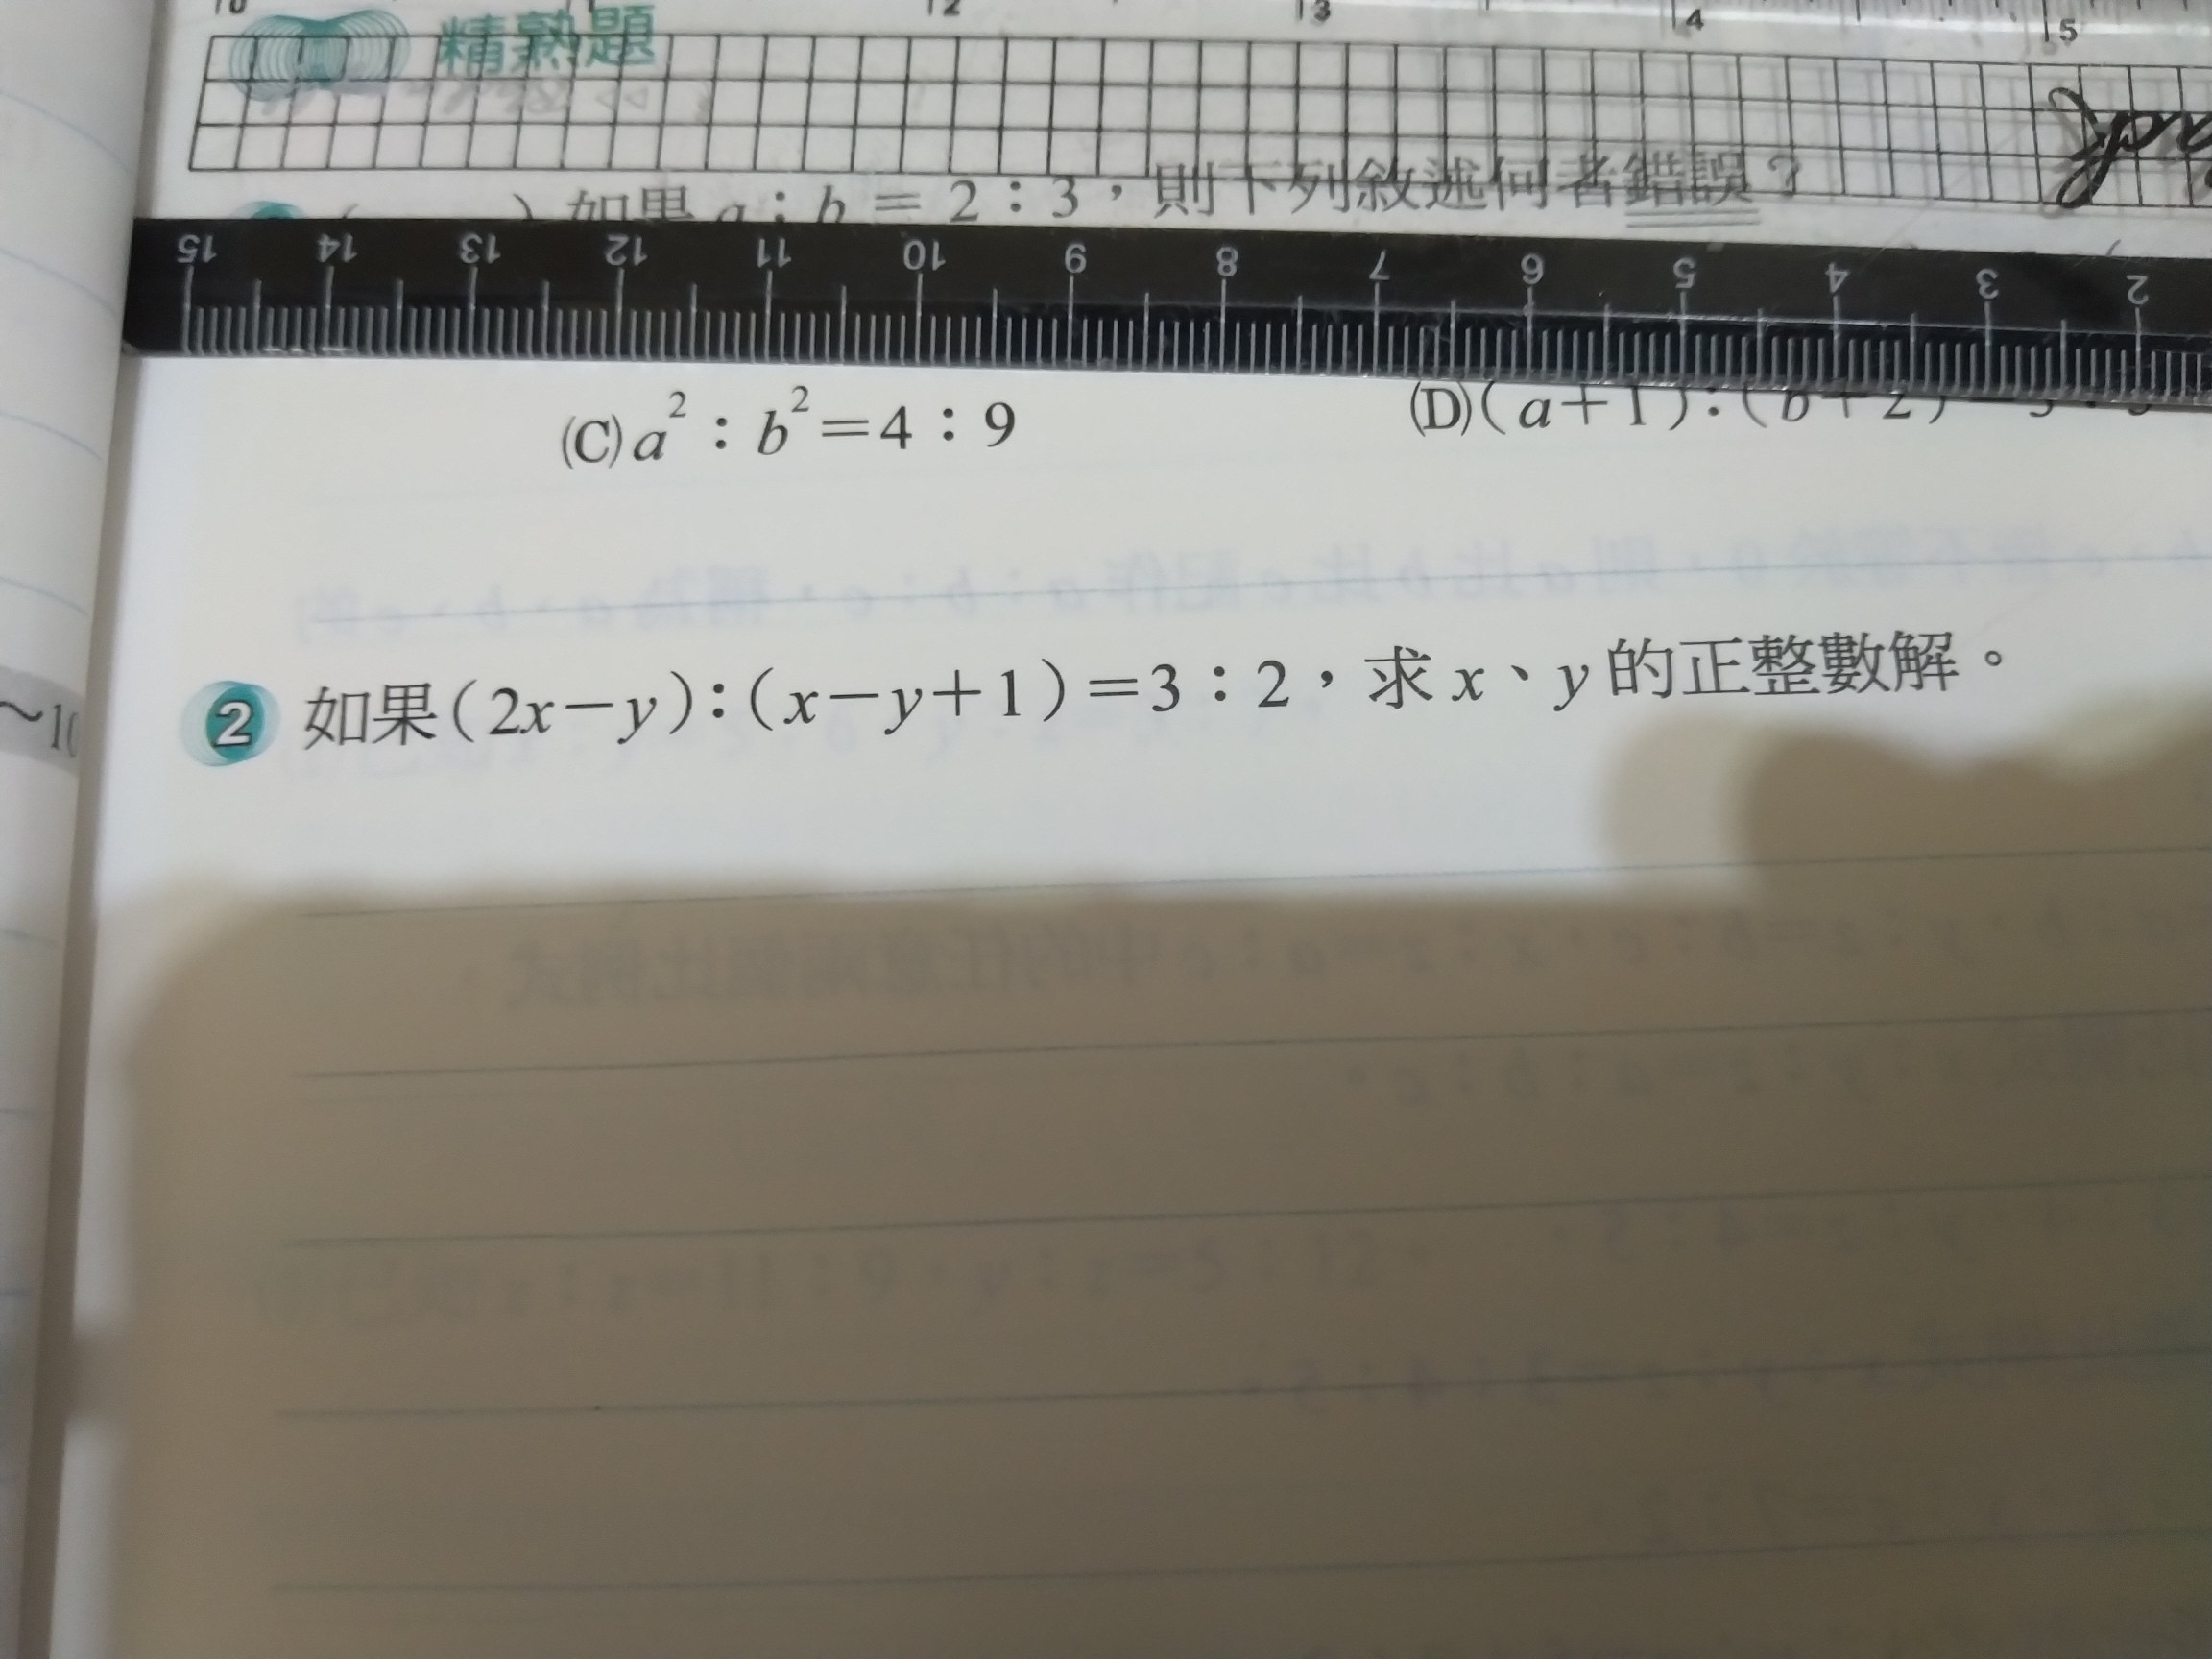 10 12 13 14 15
精熟題
) 如果 a：b＝2：3，則下列敘述何者錯誤？
15 14 13 12 11 10 9 8 7 6 5 4 3 2
(C) a²：b²＝4：9 (D) (a＋1)：(b＋2)
2 如果(2x－y)：(x－y＋1)＝3：2，求 x、y 的正整數解。